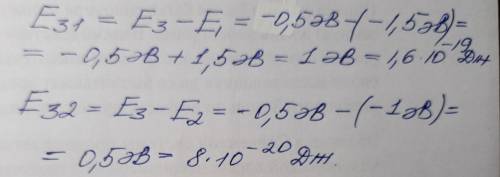 E₃₁ = E₃ - E₁ = -0,5эВ-(-1,5эВ)=
= -0,5эВ + 1,5эВ = 1эВ = 1,6·10⁻¹⁹Дж
E₃₂ = E₃ - E₂ = -0,5эВ - (-1эВ)=
= 0,5эВ = 8·10⁻²⁰Дж.